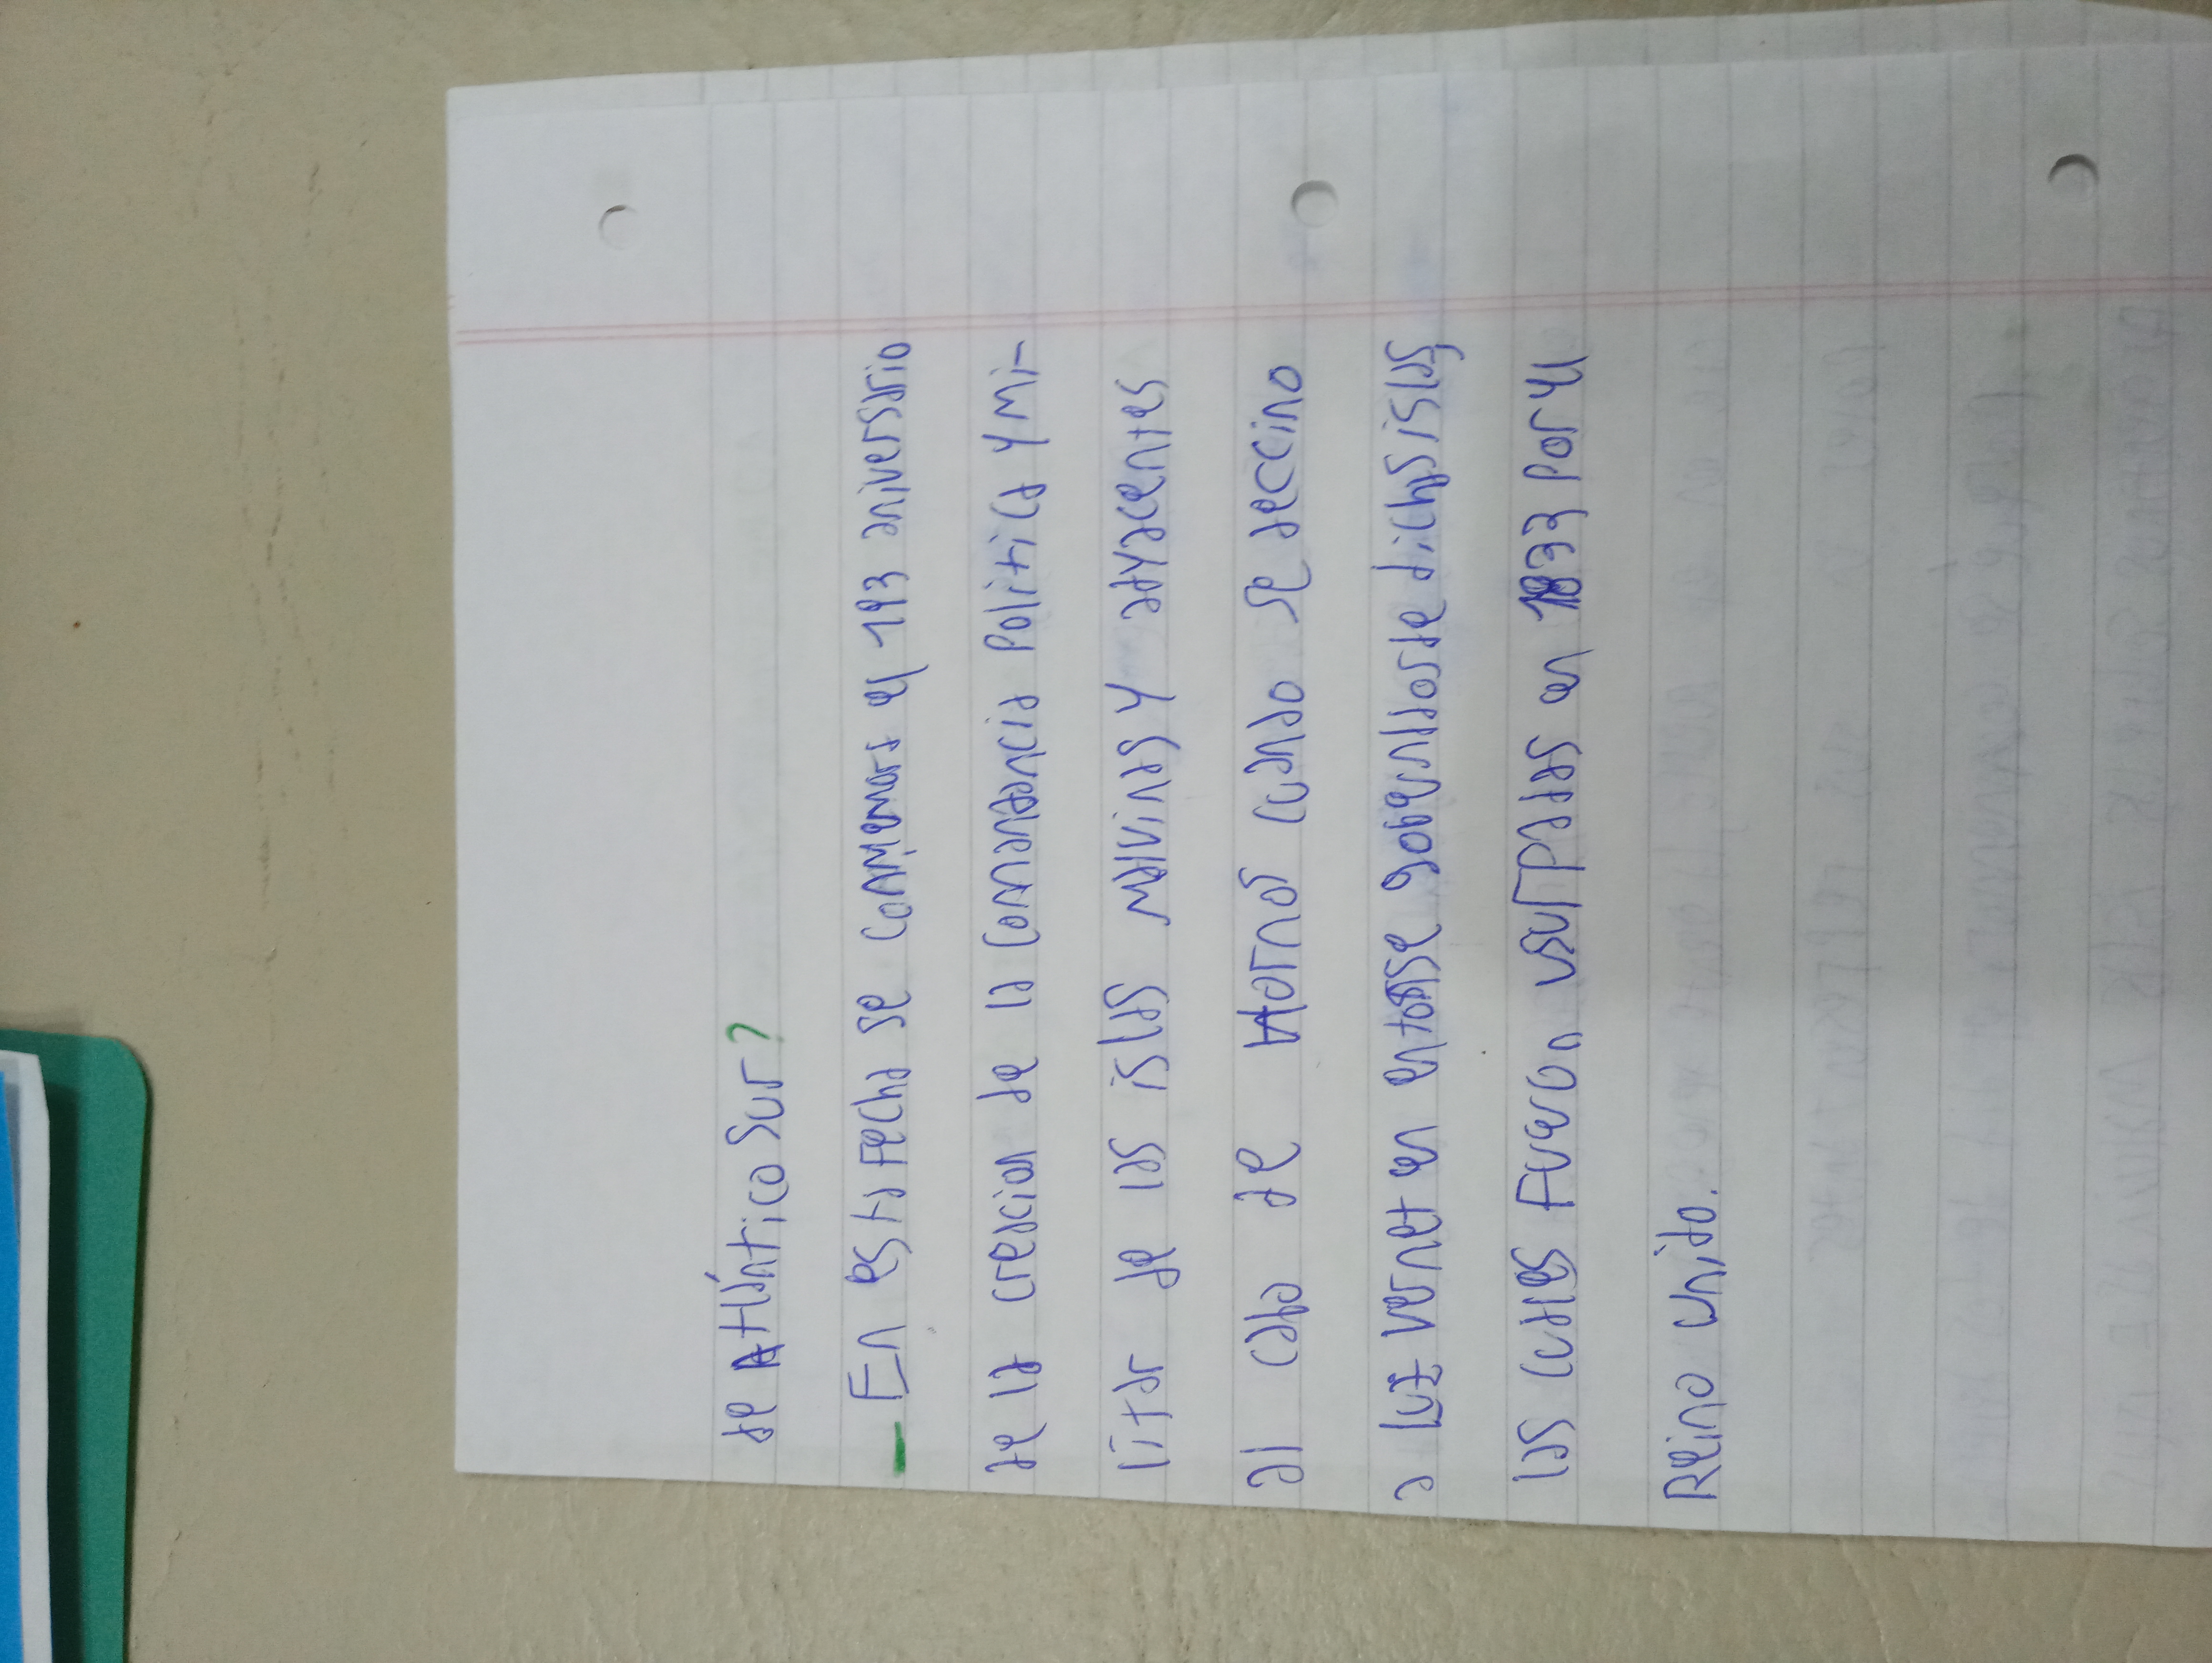 de Atlántico Sur?
- En esta Fecha se conmemora el 193 aniversario
de la creacion de la Comendencia Politica y mi-
litar de las islas Malvinas y adyacentes
al cabo de Hornos cuando se deccino
a Luiz Vernet en entosse gobernlosde dichas islas
las cuales Fueron usurpadas en 1833 por el
Reino unido.